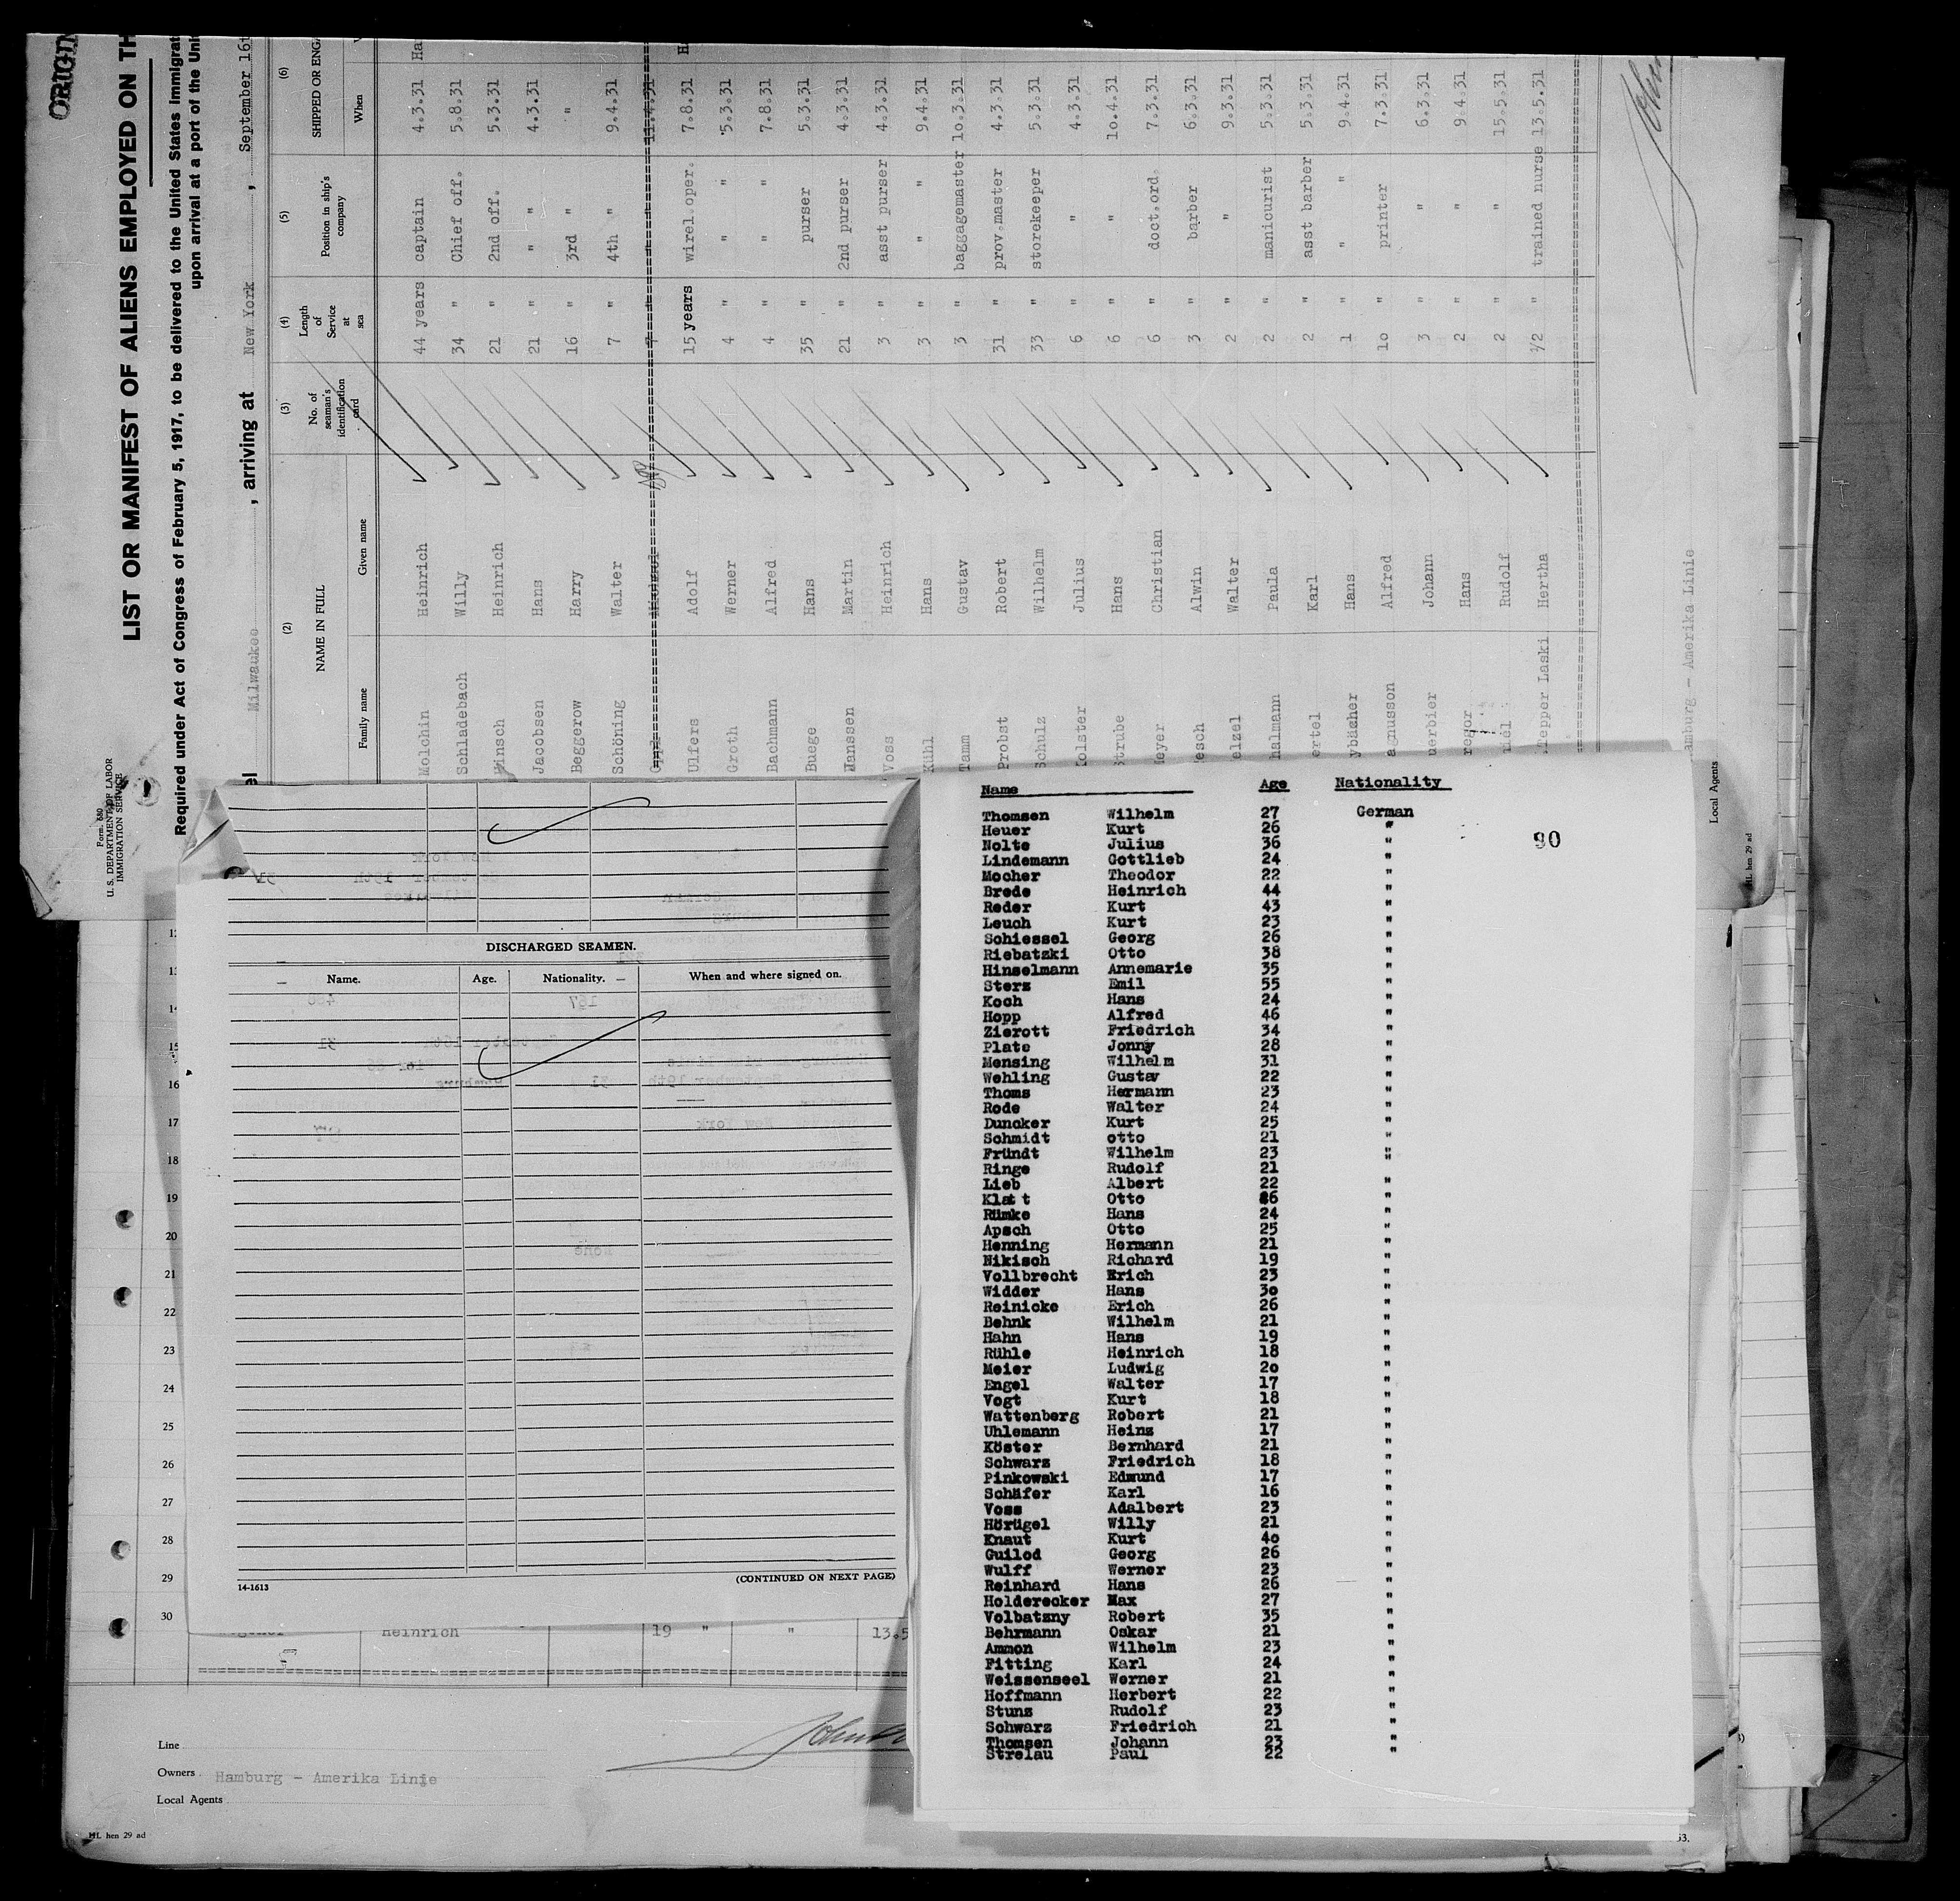 ORIGIN
LIST OR MANIFEST OF ALIENS EMPLOYED ON TH
Required under Act of Congress of February 5, 1917, to be delivered to the United States Immigrat
upon arrival at a port of the Uni
el Milwaukee , arriving at New York , September 16t
Form 680
U. S. DEPARTMENT OF LABOR
IMMIGRATION SERVICE
(2) (3) (4) (5) (6)
NAME IN FULL No. of seaman's identification card Length of Service at sea Position in ship's company SHIPPED OR ENGA
Family name Given name When
Molchin Heinrich 44 years captain 4.3.31 Ha
Schladebach Willy 34 " Chief off. 5.8.31
Hinsch Heinrich 21 " 2nd off. 5.3.31
Jacobsen Hans 21 " " " 4.3.31
Beggerow Harry 16 " 3rd " "
Schöning Walter 7 " 4th " 9.4.31
Ulfers Adolf 15 years wirel.oper. 7.8.31 H
Groth Werner 4 " " " 5.3.31
Bachmann Alfred 4 " " " 7.8.31
Buege Hans 35 " purser 5.3.31
Hanssen Martin 21 " 2nd purser 4.3.31
Voss Heinrich 3 " asst purser 4.3.31
Kühl Hans 3 " " " 9.4.31
Tamm Gustav 3 " baggagemaster 10.3.31
Probst Robert 31 " prov.master 4.3.31
Schulz Wilhelm 33 " storekeeper 5.3.31
olster Julius 6 " " 4.3.31
Strube Hans 6 " " 10.4.31
eyer Christian 6 " doct.ord. 7.3.31
esch Alwin 3 " barber 6.3.31
elzel Walter 2 " " 9.3.31
halmann Paula 2 " manicurist 5.3.31
ertel Karl 2 " asst barber 5.3.31
Hans 1 " " " 9.4.31
agnusson Alfred 10 " printer 7.3.31
uerbier Johann 3 " " 6.3.31
regor Hans 2 " " 9.4.31
Rudolf 2 " " 15.5.31
Tepper Laski Hertha 1/2 " trained nurse 13.5.31
amburg - Amerika Linie
Local Agents
ML hen 29 ad
DISCHARGED SEAMEN.
Name. Age. Nationality. When and where signed on.
14-1613 (CONTINUED ON NEXT PAGE)
12
13
14
15
16
17
18
19
20
21
22
23
24
25
26
27
28
29
30
Heinrich 19 " " 13.5
Line
Owners Hamburg - Amerika Linie
Local Agents
ML hen 29 ad
Name Age Nationality
Thomsen Wilhelm 27 German
90
Heuer Kurt 26 "
Nolte Julius 36 "
Lindemann Gottlieb 24 "
Mocher Theodor 22 "
Brede Heinrich 44 "
Reder Kurt 43 "
Leuch Kurt 23 "
Schiessel Georg 26 "
Riebatzki Otto 38 "
Hinselmann Annemarie 35 "
Sterz Emil 55 "
Koch Hans 24 "
Hopp Alfred 46 "
Zierott Friedrich 34 "
Plate Jonny 28 "
Mensing Wilhelm 31 "
Wehling Gustav 22 "
Thoms Hermann 23 "
Rode Walter 24 "
Duncker Kurt 25 "
Schmidt otto 21 "
Fründt Wilhelm 23 "
Ringe Rudolf 21
Lieb Albert 22 "
Klatt Otto 26 "
Rümke Hans 24 "
Apsch Otto 25 "
Henning Hermann 21 "
Nikisch Richard 19 "
Vollbrecht Erich 23 "
Widder Hans 3o "
Reinicke Erich 26 "
Behnk Wilhelm 21 "
Hahn Hans 19 "
Rühle Heinrich 18 "
Meier Ludwig 2o "
Engel Walter 17 "
Vogt Kurt 18 "
Wattenberg Robert 21 "
Uhlemann Heinz 17 "
Köster Bernhard 21 "
Schwarz Friedrich 18 "
Pinkowski Edmund 17 "
Schäfer Karl 16 "
Voss Adalbert 23 "
Hörügel Willy 21 "
Knaut Kurt 4o "
Guilod Georg 26 "
Wulff Werner 23 "
Reinhard Hans 26 "
Holderecker Max 27 "
Volbatzny Robert 35 "
Behrmann Oskar 21 "
Ammon Wilhelm 23 "
Fitting Karl 24 "
Weissenseel Werner 21 "
Hoffmann Herbert 22 "
Stunz Rudolf 23 "
Schwarz Friedrich 21 "
Thomsen Johann 23 "
Strelau Paul 22 "